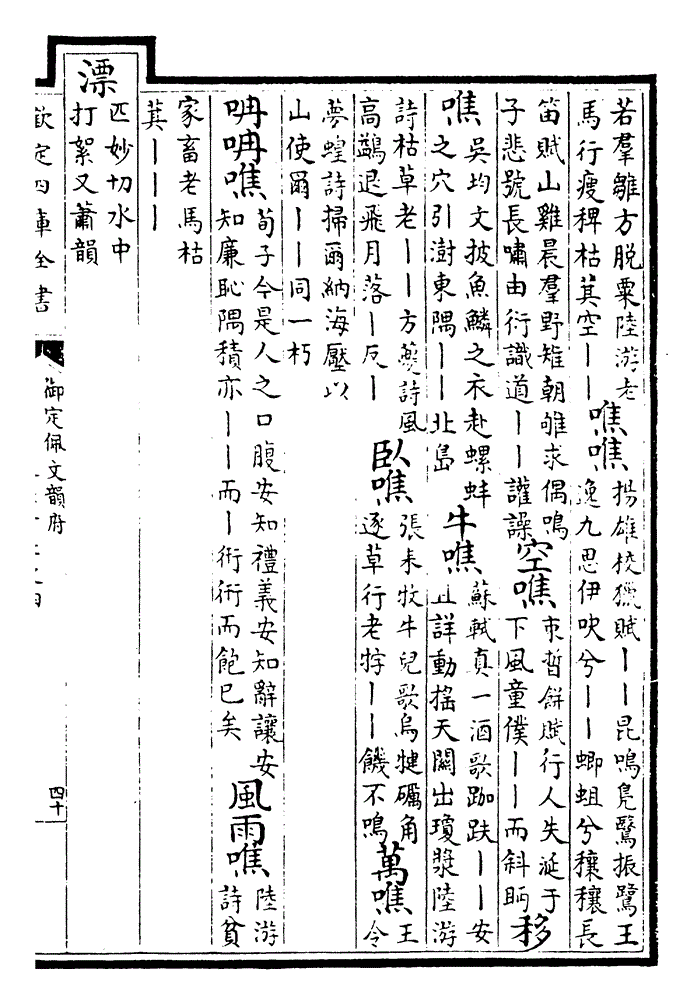 若羣雛方脫粟陸游老
馬行瘦稗枯萁空丨丨
噍噍
揚雄校獵賦丨丨昆鳴鳧鷖振鷺王
逸九思伊吷兮丨丨蝍蛆兮穰穰長
笛賦山雞晨羣野雉朝雊求偶鳴
子悲號長嘯由衍識道丨丨讙譟
空噍
束晳餅賦行人失涎于
下風童僕丨丨而斜眄
移
噍
吳均文披魚鱗之衣赴螺蚌
之穴引澍東隅丨丨北島
牛噍
蘇軾真一酒歌跏趺丨丨安
且詳動搖天關出瓊漿陸游
詩枯草老丨丨方夔詩風
高鷁退飛月落丨反丨
臥噍
張耒牧牛兒歌烏犍礪角
逐草行老牸丨丨饑不鳴
萬噍
王
令
夢蝗詩掃爾納海壓以
山使爾丨丨同一朽
呥呥噍
荀子今是人之口腹安知禮義安知辭讓安
知廉恥隅積亦丨丨而丨術術而飽已矣
風雨噍
陸游
詩貧
家畜老馬枯
萁丨丨丨
漂
匹妙切水中
打絮又蕭韻
欽定四庫全書
御定佩文韻府
四十